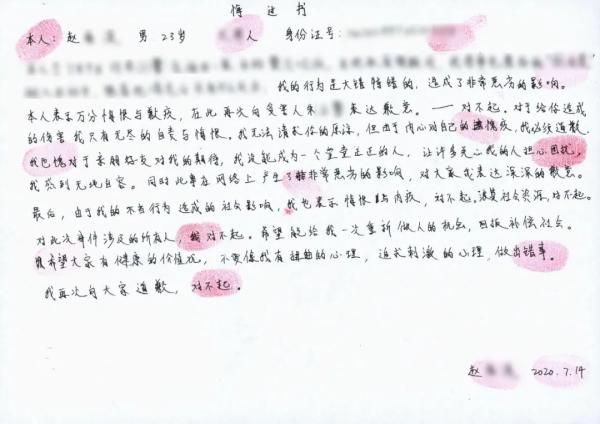 悔过书
本人：赵 男 23岁 人 身份证号：
我的行为是大错特错的，造成了非常恶劣的影响。
本人表示万分悔恨与歉疚，在此再次向受害人朱 表达歉意。——对不起。对于给你造成
的伤害我只有无尽的自责与悔恨。我无法请求你的原谅，但由于内心对自己的愧疚，我必须道歉。
我也愧对于亲朋好友对我的期待，我没能成为一个堂堂正正的人，让许多关心我的人担心困扰，
我感到无地自容。同时此事在网络上产生了非常恶劣的影响，对大家我表达深深的歉意。
最后，由于我的不当行为造成的社会影响，我也表示悔恨与内疚，对不起。浪费社会资源，对不起。
对此次事件涉及的所有人，我对不起。希望能给我一次重新做人的机会，回报补偿社会。
我希望大家有健康的价值观，不要像我有扭曲的心理，追求刺激的心理，做出错事。
我再次向大家道歉，对不起。
赵 2020.7.14